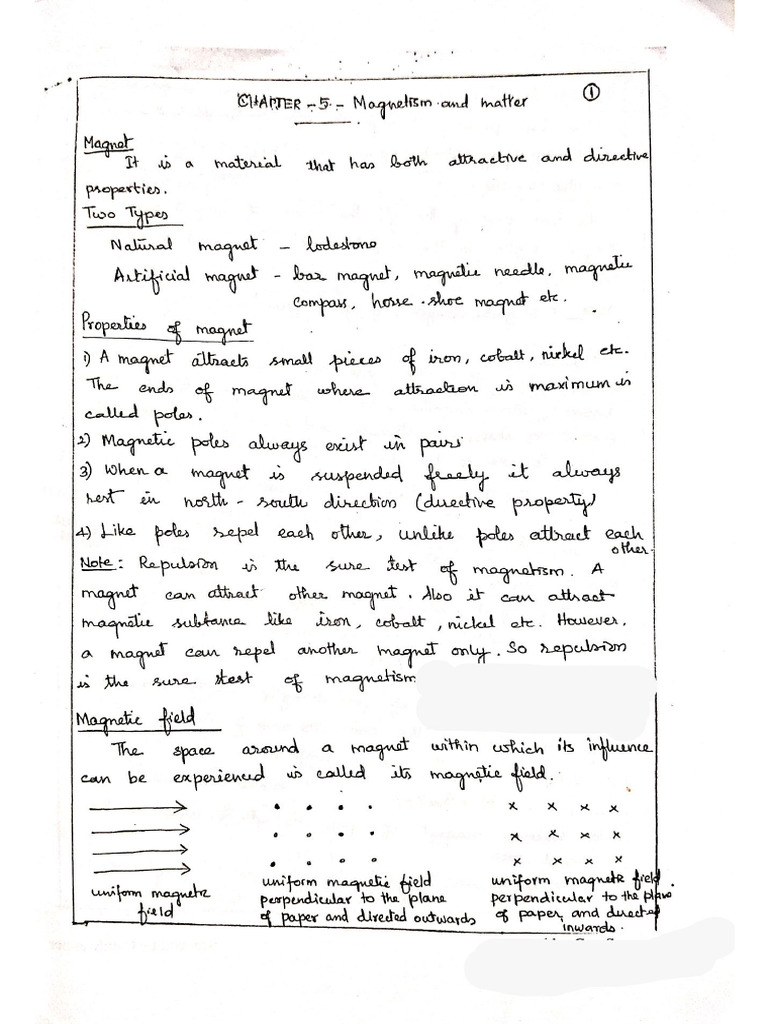 CHAPTER - 5 - Magnetism and matter
1
Magnet
It is a material that has both attractive and directive
properties.
Two Types
Natural magnet - lodestone
Artificial magnet - bar magnet, magnetic needle, magnetic
compass, horse-shoe magnet etc.
Properties of magnet
1) A magnet attracts small pieces of iron, cobalt, nickel etc.
The ends of magnet where attraction is maximum is
called poles.
2) Magnetic poles always exist in pairs
3) When a magnet is suspended freely it always
rest in north - south direction (directive property)
4) Like poles repel each other, unlike poles attract each
other.
Note: Repulsion is the sure test of magnetism. A
magnet can attract other magnet. Also it can attract
magnetic substance like iron, cobalt, nickel etc. However,
a magnet can repel another magnet only. So repulsion
is the sure test of magnetism
Magnetic field
The space around a magnet within which its influence
can be experienced is called its magnetic field.
uniform magnetic
field
uniform magnetic field
perpendicular to the plane
of paper and directed outwards
uniform magnetic field.
perpendicular to the plane
of paper, and directed
inwards.